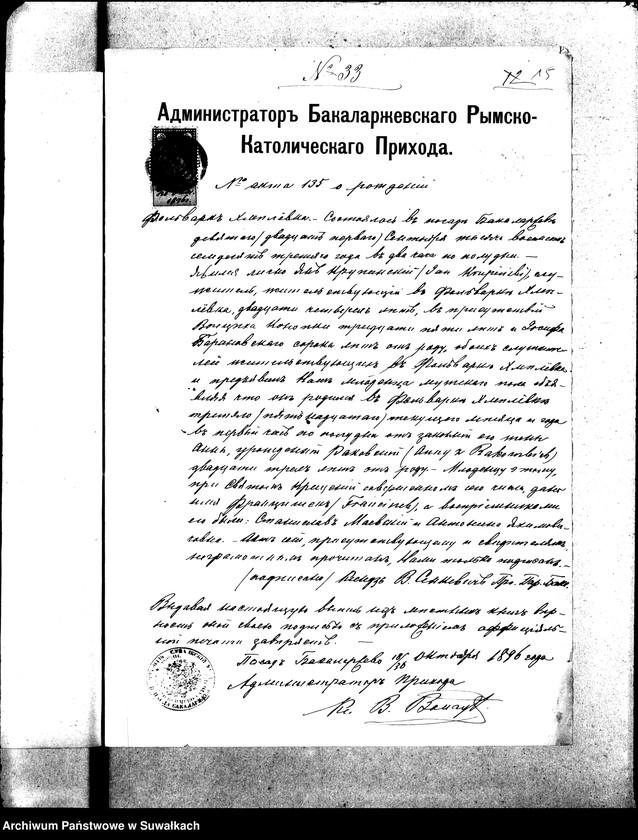 № 33
12 15
Администраторъ Бакаларжевскаго Рымско-
Католическаго Прихода.
№ акта 135 о рожденіи
Фольваркъ Хмѣлевка. – Состоялось въ посадѣ Бакаларжево
девятаго / двадцать перваго / Сентября тысяча восемьсотъ
семдесятъ третьяго года въ два часа по полудни. –
Явился лично Янъ Крупинскій / Jan Krupiński /, слу-
житель, жительствующій въ Фольварку Хмѣ-
левка, двадцати четырехъ лѣтъ, въ присутствіи
Войцѣха Конопки тридцати пяти лѣтъ и Іосифа
Барановскаго сорока лѣтъ отъ роду, обоихъ служите-
лей жительствующихъ въ Фольварку Хмѣлевка
и предъявилъ Намъ младенца мужескаго пола объ-
являя что онъ родился въ Фольварку Хмѣлевка
третьяго / пятнадцатаго / текущаго мѣсяца и года
въ первый часъ по полудни отъ законной его жены
Анны, урожденной Раковской
двадцати трехъ лѣтъ отъ роду. – Младенцу этому,
при Святомъ Крещеніи совершенномъ сего числа, дано
имя Францишекъ / Franciszek /, а воспріемниками
его были: Станиславъ Маевскій и Антонина Якимови-
чева. – Актъ сей, присутствующему и свидѣтелямъ
неграмотнымъ прочитанъ, Нами только подписанъ. –
/ подписано / Ксендзъ В.
Выдавая настоящую выпись изъ мѣстныхъ книгъ вѣр-
ность оной своею подписью съ приложеніемъ оффиціаль-
ной печати завѣряетъ. –
Посадъ Бакаларжево Октября 1896 года
Администраторъ Прихода
Кс. В.
Archiwum Państwowe w Suwałkach